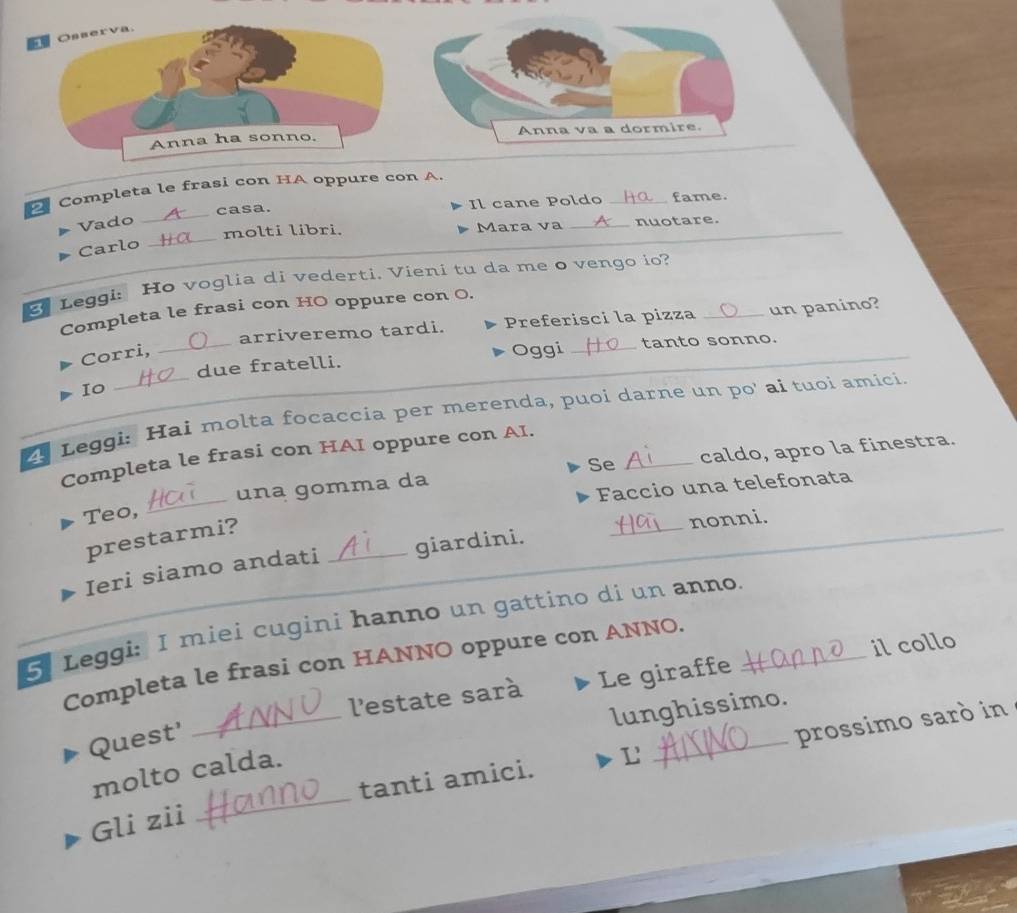 1 Osserva.
Anna ha sonno.
Anna va a dormire.
2 Completa le frasi con HA oppure con A.
Vado A casa.
Il cane Poldo Ha fame.
Carlo Ha molti libri.
Mara va A nuotare.
3 Leggi: Ho voglia di vederti. Vieni tu da me o vengo io?
Completa le frasi con HO oppure con O.
Corri, O arriveremo tardi.
Preferisci la pizza O un panino?
Io HO due fratelli.
Oggi HO tanto sonno.
4 Leggi: Hai molta focaccia per merenda, puoi darne un po' ai tuoi amici.
Completa le frasi con HAI oppure con AI.
Teo, Hai una gomma da
prestarmi?
Se Ai caldo, apro la finestra.
Ieri siamo andati Ai giardini.
Faccio una telefonata
Hai nonni.
5 Leggi: I miei cugini hanno un gattino di un anno.
Completa le frasi con HANNO oppure con ANNO.
Quest' ANNO l'estate sarà
molto calda.
Le giraffe Hanno il collo
lunghissimo.
Gli zii Hanno tanti amici.
L' ANNO prossimo sarò in